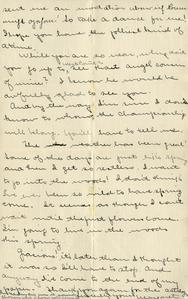 sent me an invitation
So take a dance for me!
I hope you have the jolliest kind of
a time.
While you are so near, why don't
you go up, to see that angel cousin
of mine? I know he would be
awfully glad to see you.
And by the way, Jim Sim I don't
know to whom the championship
will belong. You'll have to tell us.
The weather has been great!
Some of the days are just like spring
and then I get so restless. I want to
go into the woods! I don't think
I've ever been so wild to have spring
come. It seems as though I can't
wait until the first flowers come.
I'm going to live in the woods
this spring.
it's later than I thought
it was so I'll have to stop. And
anyway I've come to the end of my
paper. Thank you again for the